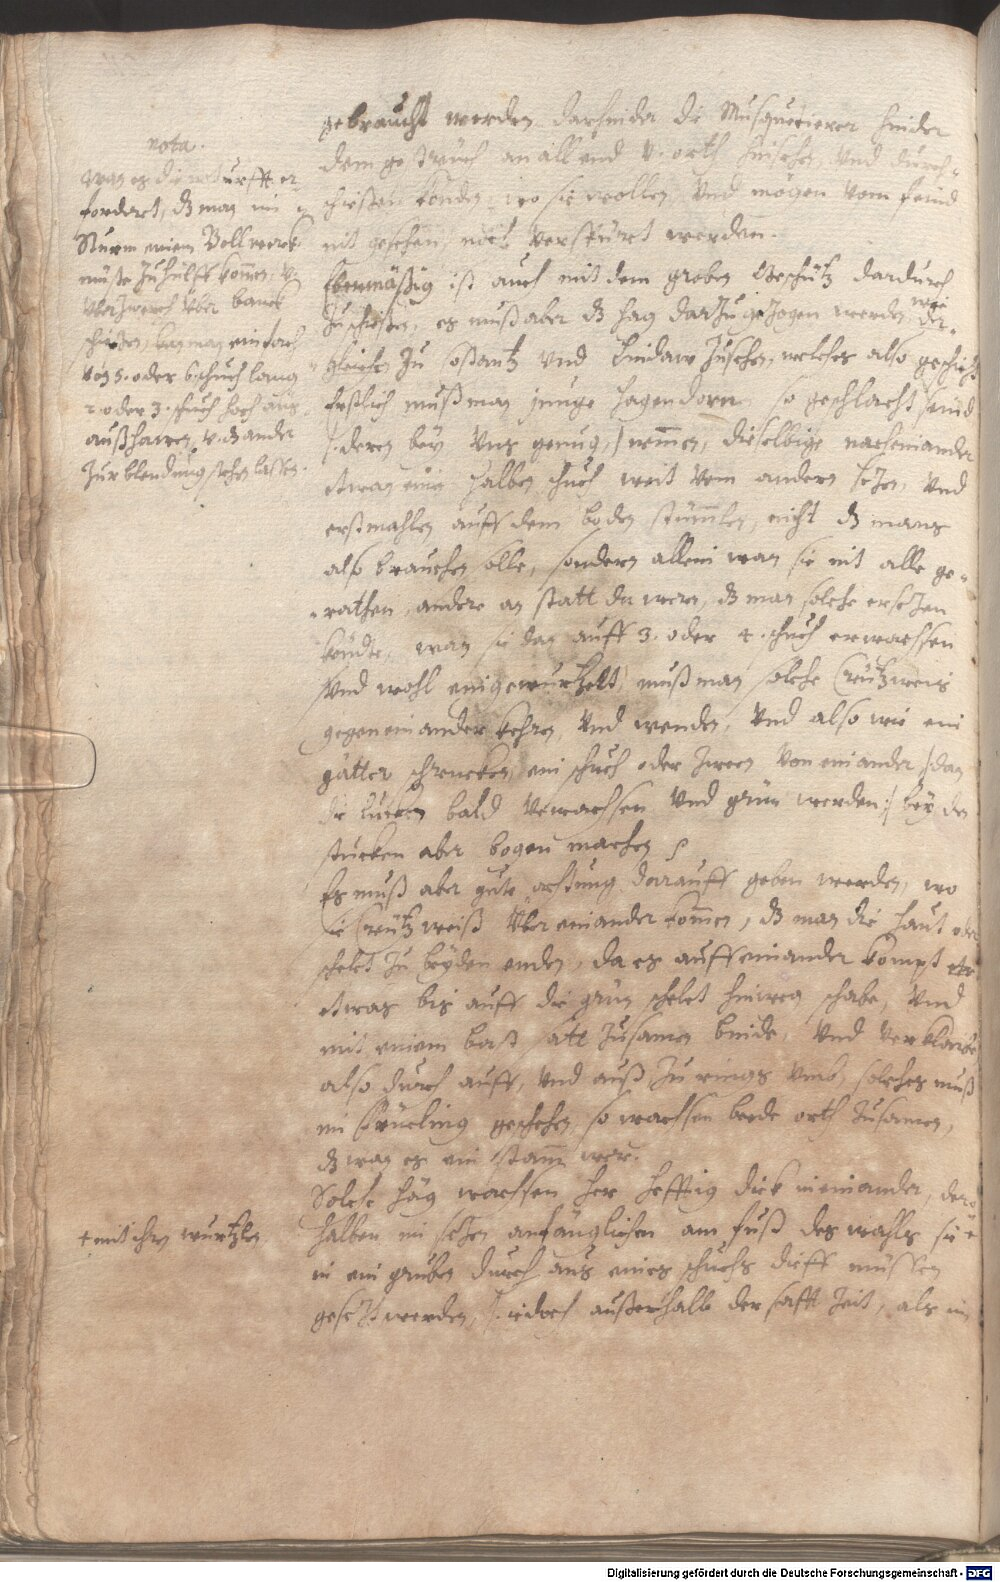 nota.
wan es die notturfft er-
fordert, dz man im
Sturm einem Bollwerck
müste zu hülff komen, v.
vberzwerch vber banck
schießen, kan man einfach
von 5. oder 6 schuch lang
2. oder 3. schuch hoch auß
außhawen, v. dz ander
zur blendung stehen lassen.
gebraucht werden darhinder die Musquetierer hinder
dem ge an all end v. orth hinsehen, vnd durch-
schießen könden, wo sie wollen, vnd mögen vom feind
nit gesehen, noch verspürt werden.
Ebenmäßig ist auch mit dem groben Geschütz dardurch
zu schießen, es muß aber dz hag darzu gezogen werden, wie der-
gleichen zu vnd Lindaw zusehen, welches also geschicht
Erstlich muß man junge hagendorn so geschlacht seind
/: deren bey vns genug,/ nemmen, dieselbige nacheinander
etwan ein halben schuch weit vom andern setzen, vnd
erstmahlen auff dem boden stümmlen, nicht dz mans
also brauchen solle, sondern allein wan sie nit alle ge-
rathen, andere an statt da weren, dz man solche ersetzen
köndte, wan sie dan auff 3. oder 4. schuch erwachssen
vnd wohl eingewurtzelt, muß man solche Creützweis
gegen einander kehren, vnd wenden, vnd also wie ein
gätter schrencken, ein schuch oder zween von einander /: dan
die lucken bald verwachsen vnd grün werden :/ bey den
stucken aber bogen machen
Es muß aber gute achtung darauff geben werden, wo
sie Creützweiß vber einander komen, dz man die haut oder
schelet zu beyden enden, da es auffeinander kompt
etwas bis auff die grün schelet hinweg schabe, vnd
mit einem bast satt zusamen binde, vnd
also durch auff, vnd auß zu rings vmb, solches muß
im Früeling geschehen, so wachsen beede orth zusamen,
dz wan es ein stam wer.
Solche häg wachsen her hefftig dick ineinander, der-
halben im setzen anfänglichen am fuß des wahls sie +
+ mit ihren wurtzlen
in ein gruben durch aus eines schuchs dieff müssen
gesetzt werden, /: jedoch außerhalb der safft zeit, als im
Digitalisierung gefördert durch die Deutsche Forschungsgemeinschaft - DFG